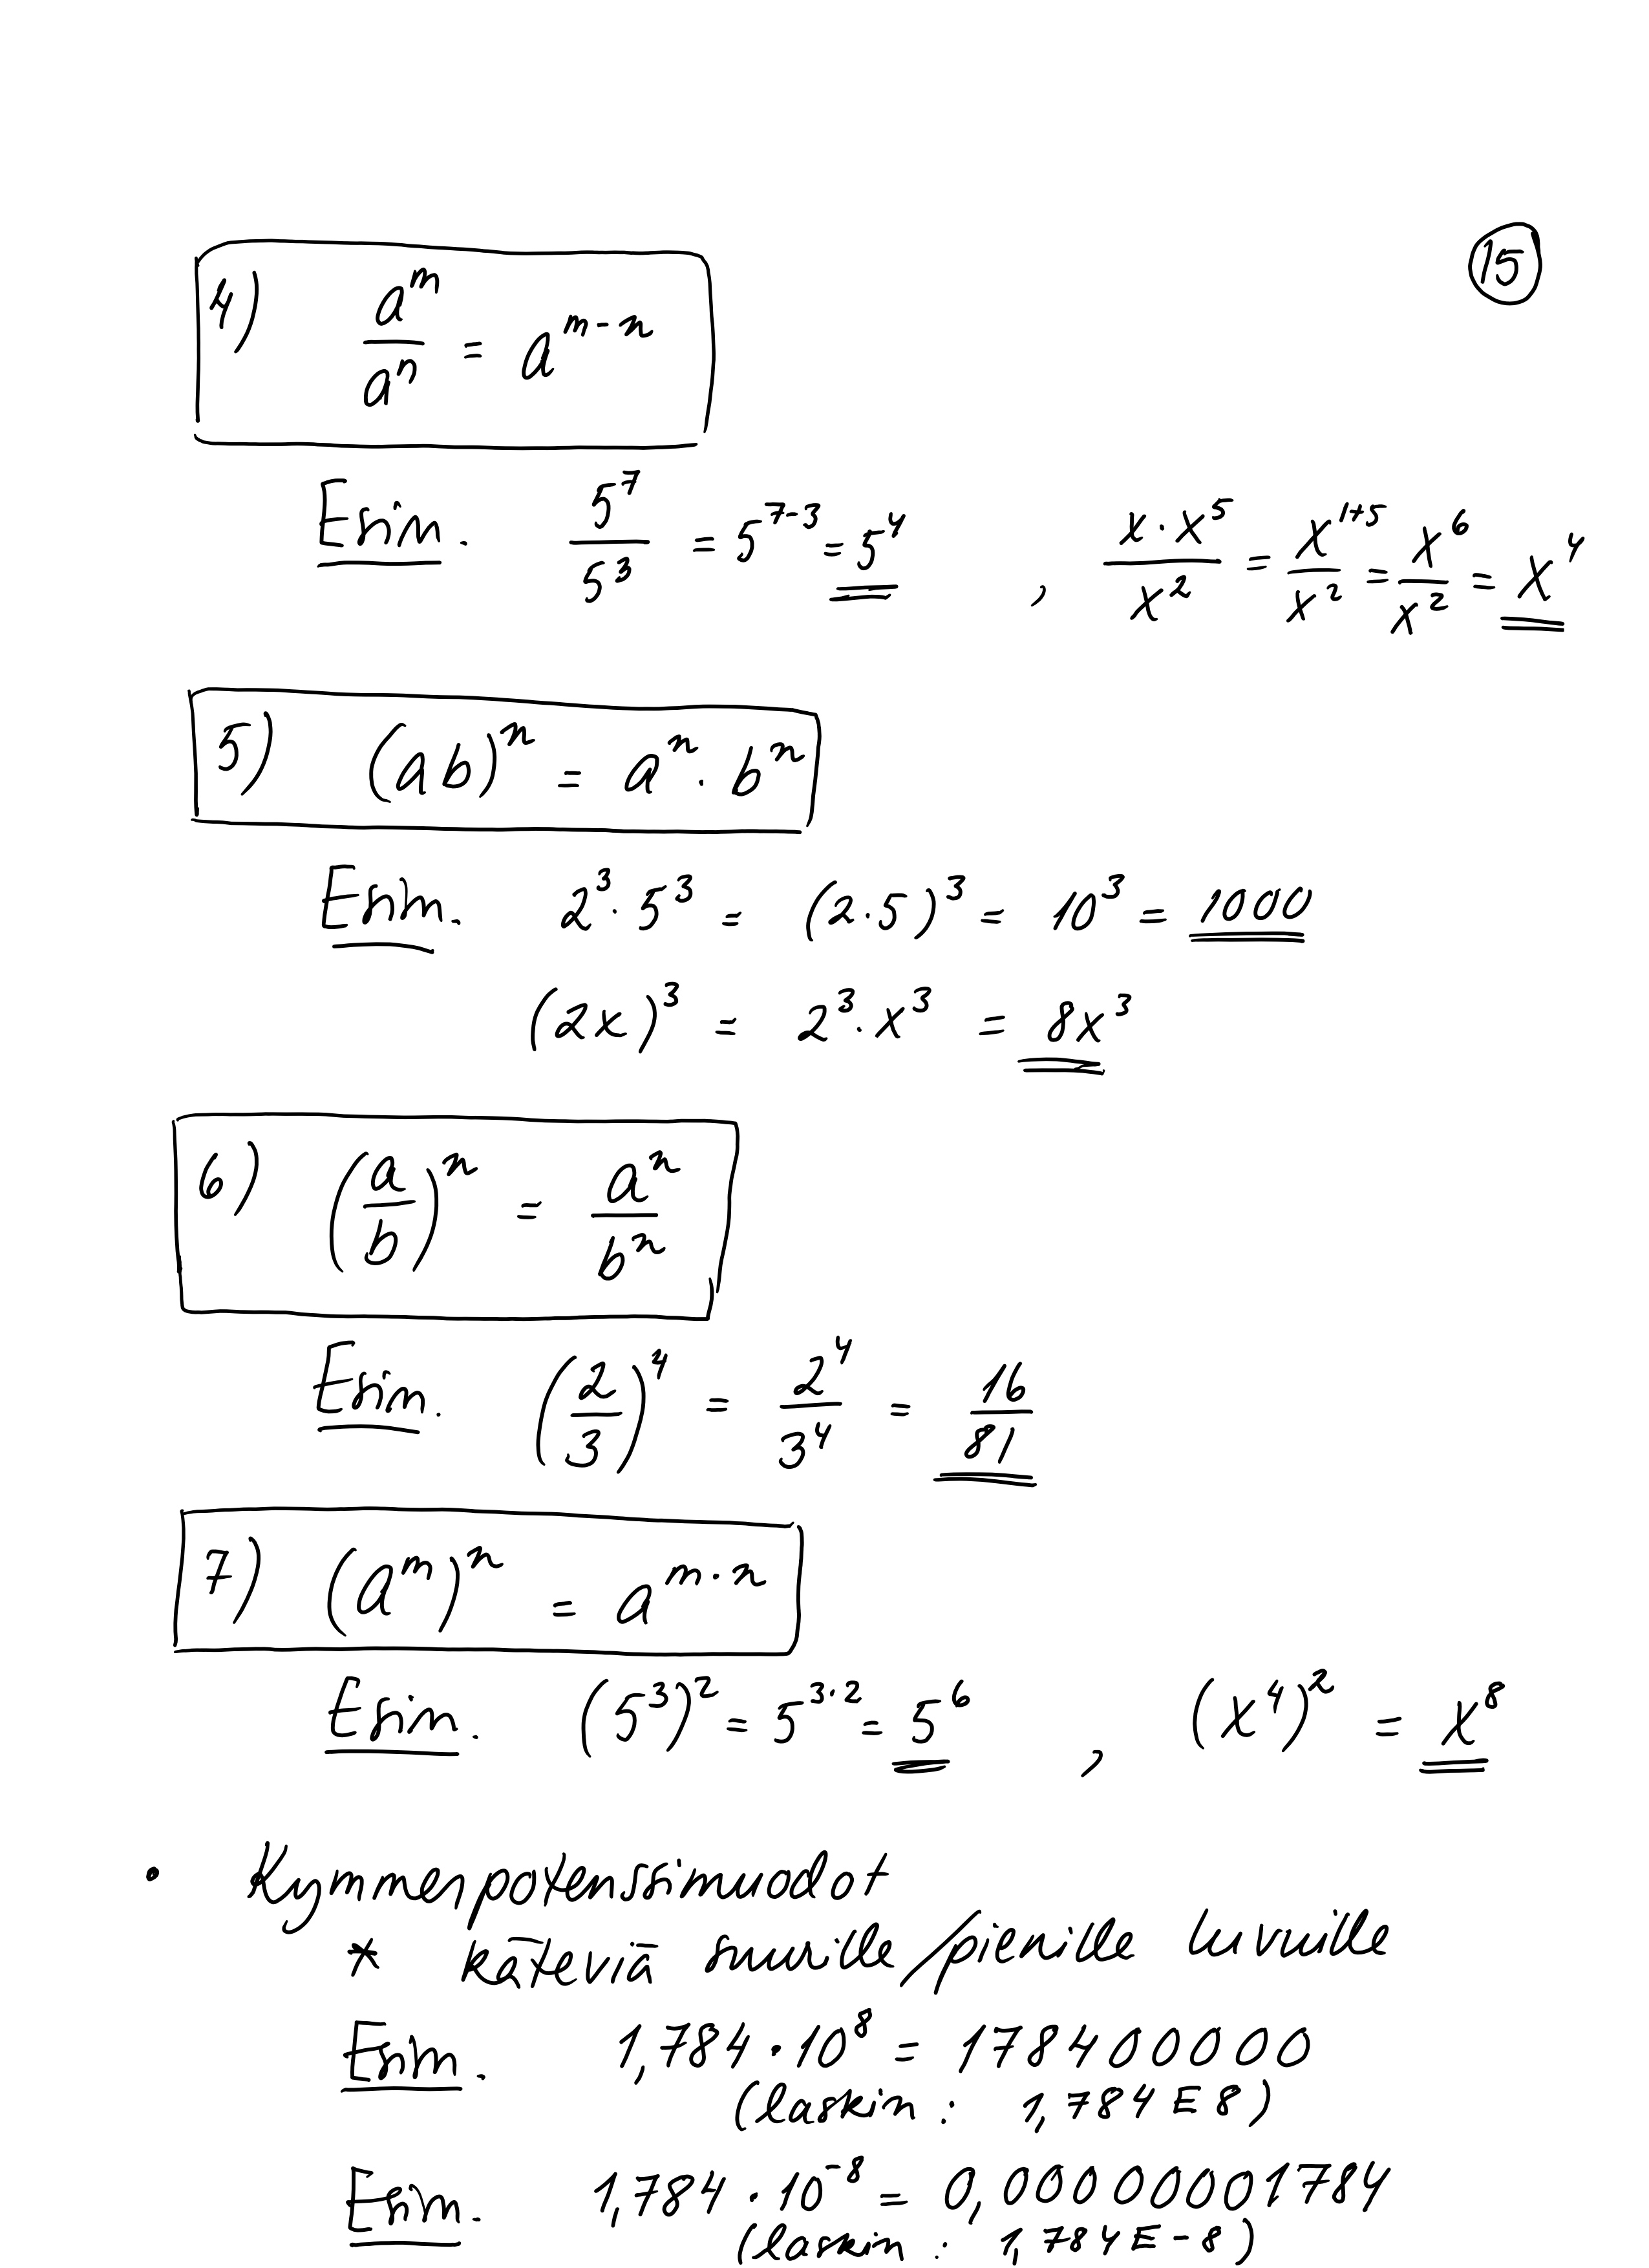 15
4) a^m/a^n = a^(m-n)
Esim. 5^7/5^3 = 5^(7-3) = 5^4 , x · x^5/x^2 = x^(1+5)/x^2 = x^6/x^2 = x^4
5) (ab)^n = a^n · b^n
Esim. 2^3 · 5^3 = (2·5)^3 = 10^3 = 1000
(2x)^3 = 2^3 · x^3 = 8x^3
6) (a/b)^n = a^n/b^n
Esim. (2/3)^4 = 2^4/3^4 = 16/81
7) (a^m)^n = a^(m·n)
Esim. (5^3)^2 = 5^(3·2) = 5^6 , (x^4)^2 = x^8
• Kymmenpotenssimuodot
* käteviä suurille/pienille luvuille
Esim. 1,784 · 10^8 = 178400000
(laskin: 1,784E8)
Esim. 1,784 · 10^-8 = 0,00000001784
(laskin: 1,784E-8)